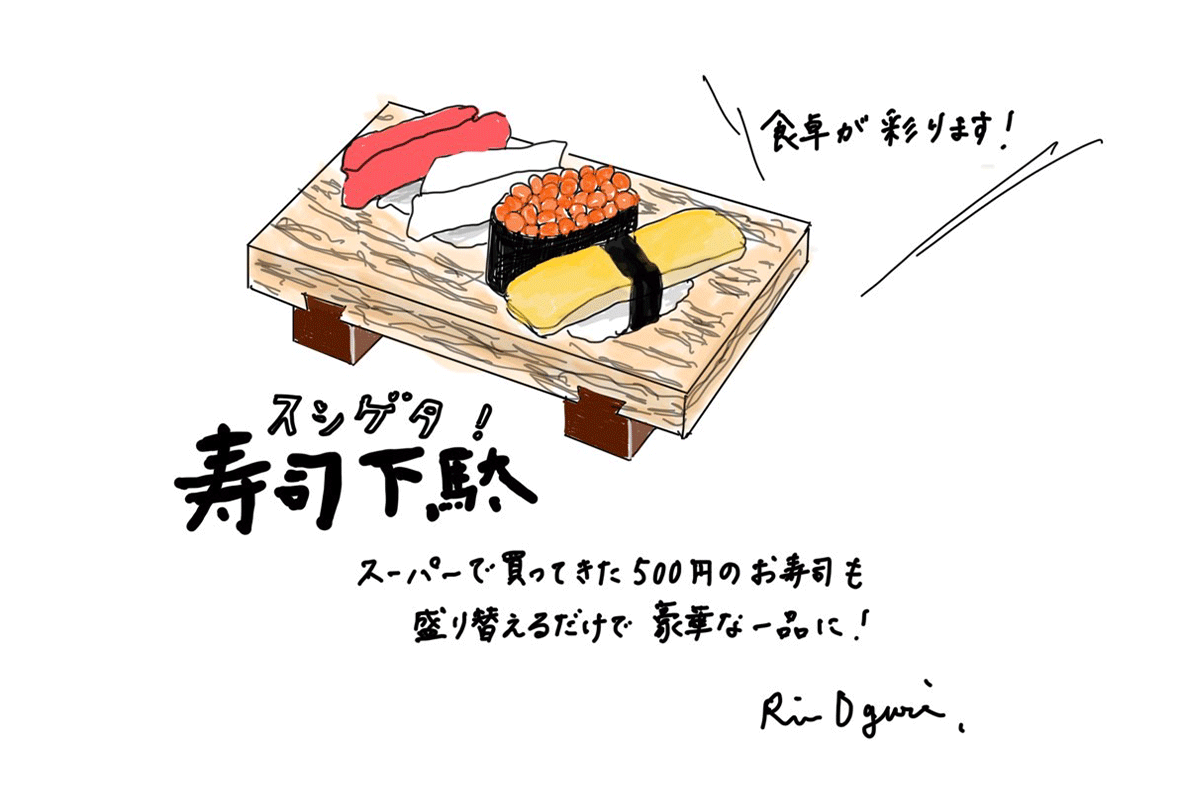 食卓が彩ります！
スシゲタ！
寿司下駄
スーパーで買ってきた500円のお寿司も
盛り替えるだけで豪華な一品に！
Rin Oguri.